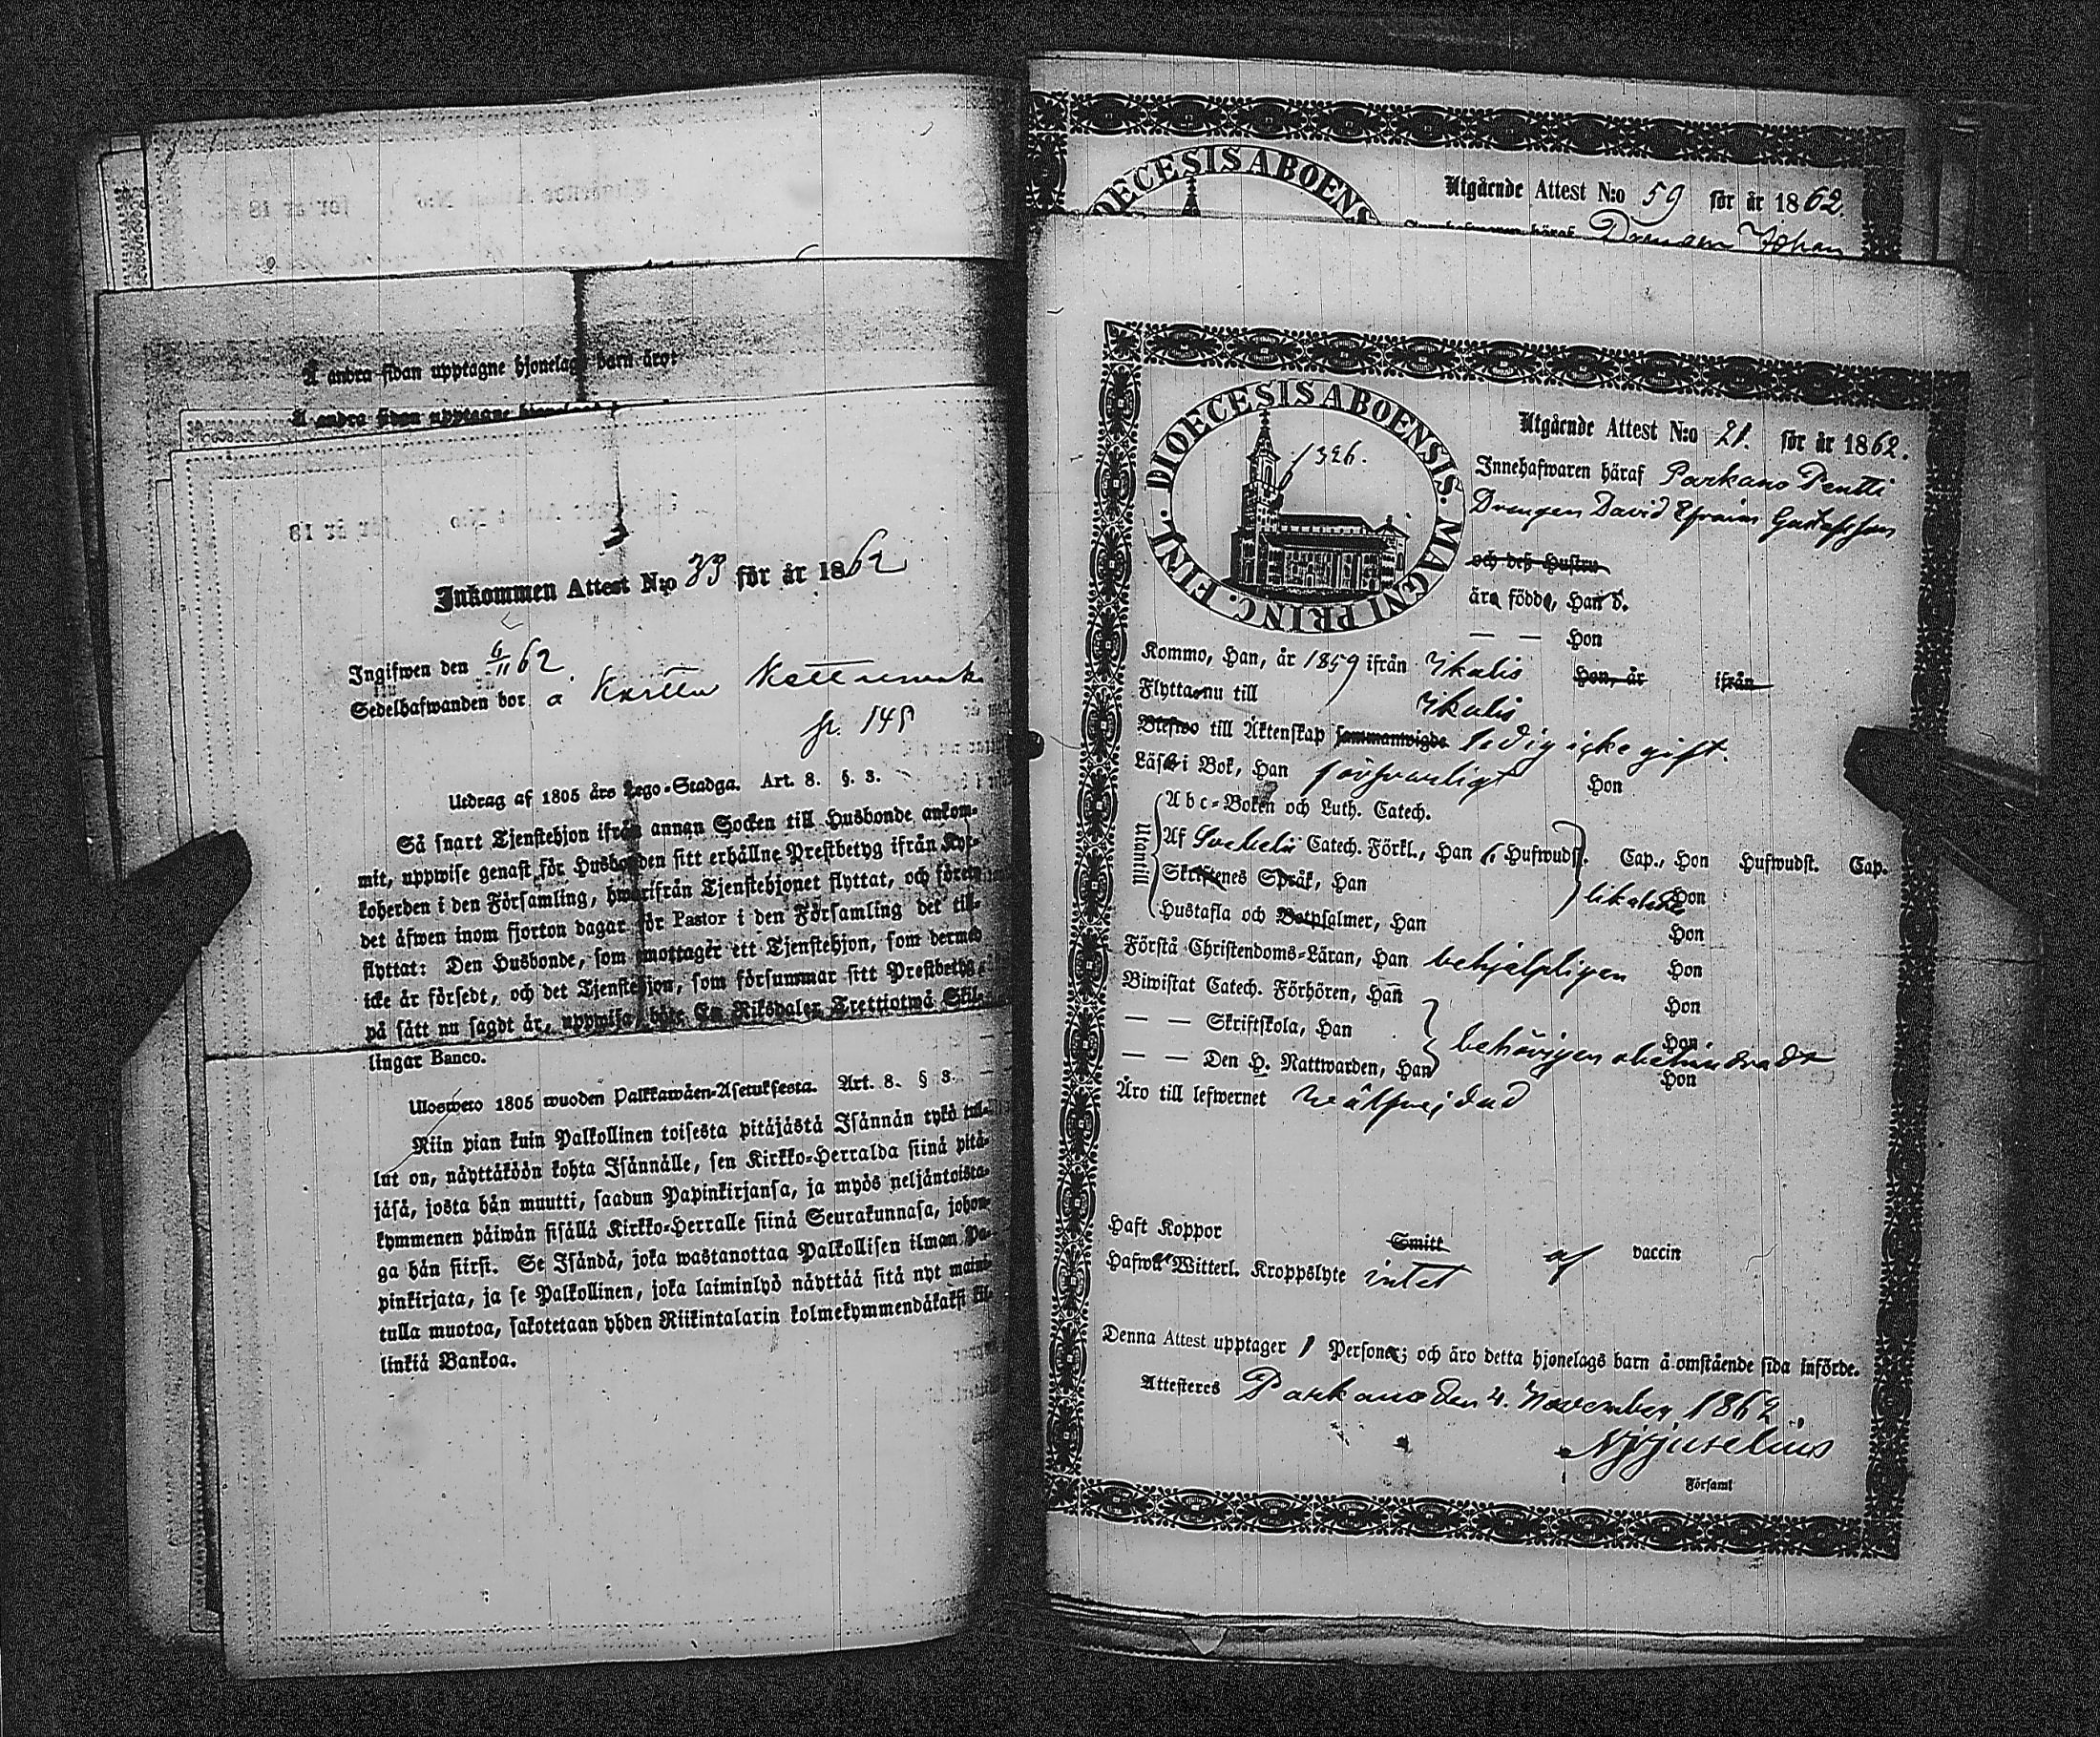 Å andra sidan upptagne hjonelags barn äro:
Å andra sidan upptagne hjonelags
Inkommen Attest N:o 33 för år 1862
Ingifwen den 6/11 62
Sedelhafwanden bor å
Utdrag af 1805 års Lego-Stadga. Art. 8. §. 3.
Så snart Tjenstehjon ifrån annan Socken till Husbonde ankom-
mit, uppwise genast för Husbonden sitt erhållne Prestbetyg ifrån Kyr-
koherden i den Församling, hwarifrån Tjenstehjonet flyttat, och förete
det äfwen inom fjorton dagar för Pastor i den Församling det till-
flyttat: Den Husbonde, som emottager ett Tjenstehjon, som dermed
icke är försedt, och det Tjenstehjon, som försummar sitt Prestbetyg,
på sätt nu sagdt är, uppwisa, böte En Riksdaler Trettiotwå Skil-
lingar Banco.
Uloswero 1805 wuoden Palkkawäen-Asetuksesta. Art. 8. § 3.
Niin pian kuin Palkollinen toisesta pitäjästä Isännän tykö tul-
lut on, näyttäköön kohta Isännälle, sen Kirkko-Herralda siinä pitä-
jäsä, josta hän muutti, saadun Papinkirjansa, ja myös neljäntoista-
kymmenen päiwän sisällä Kirkko-Herralle siinä Seurakunnasa, johon-
ga hän siirsi. Se Isändä, joka wastanottaa Palkollisen ilman Pa-
pinkirjata, ja se Palkollinen, joka laiminlyö näyttää sitä nyt maini-
tulla muotoa, sakotetaan yhden Riikintalarin kolmekymmendäkaksi kil-
linkiä Bankoa.
DIOECESIS ABOENS
Utgående Attest N:o 59 för år 1862.
Johan
DIOECESIS ABOENSIS. MAGNI PRINC. FINL.
1326.
Utgående Attest N:o 21. för år 1862.
Innehafwaren häraf Parkano Pentti
Drengen David Efraim Gustafsson
och dess Hustru
äro födde, Han d.
— — Hon
Kommo, Han, år 1859 ifrån Ikalis Hon, år ifrån
Flytta nu till Ikalis
Blefwo till Äktenskap sammanwigde ledig icke gift.
Läsa i Bok, Han försvarligt Hon
Utantill
Abc-Boken och Luth. Catech.
Af Svebelii Catech. Förkl., Han 6. Hufwudst. Cap., Hon Hufwudst. Cap.
Skriftenes Språk, Han Hon
Hustafla och Botpsalmer, Han Hon
Förstå Christendoms-Läran, Han behjelpligen Hon
Biwistat Catech. Förhören, Han Hon
— — Skriftskola, Han behörigen obehindrad Hon
— — Den H. Nattwarden, Han Hon
Äro till lefwernet wälfrejdad
Haft Koppor Smitt af vaccin
Hafwa Witterl. Kroppslyte intet
Denna Attest upptager 1 Personer; och äro detta hjonelags barn å omstående sida införde.
Attesteres Parkano den 4. November 1862.
Församl